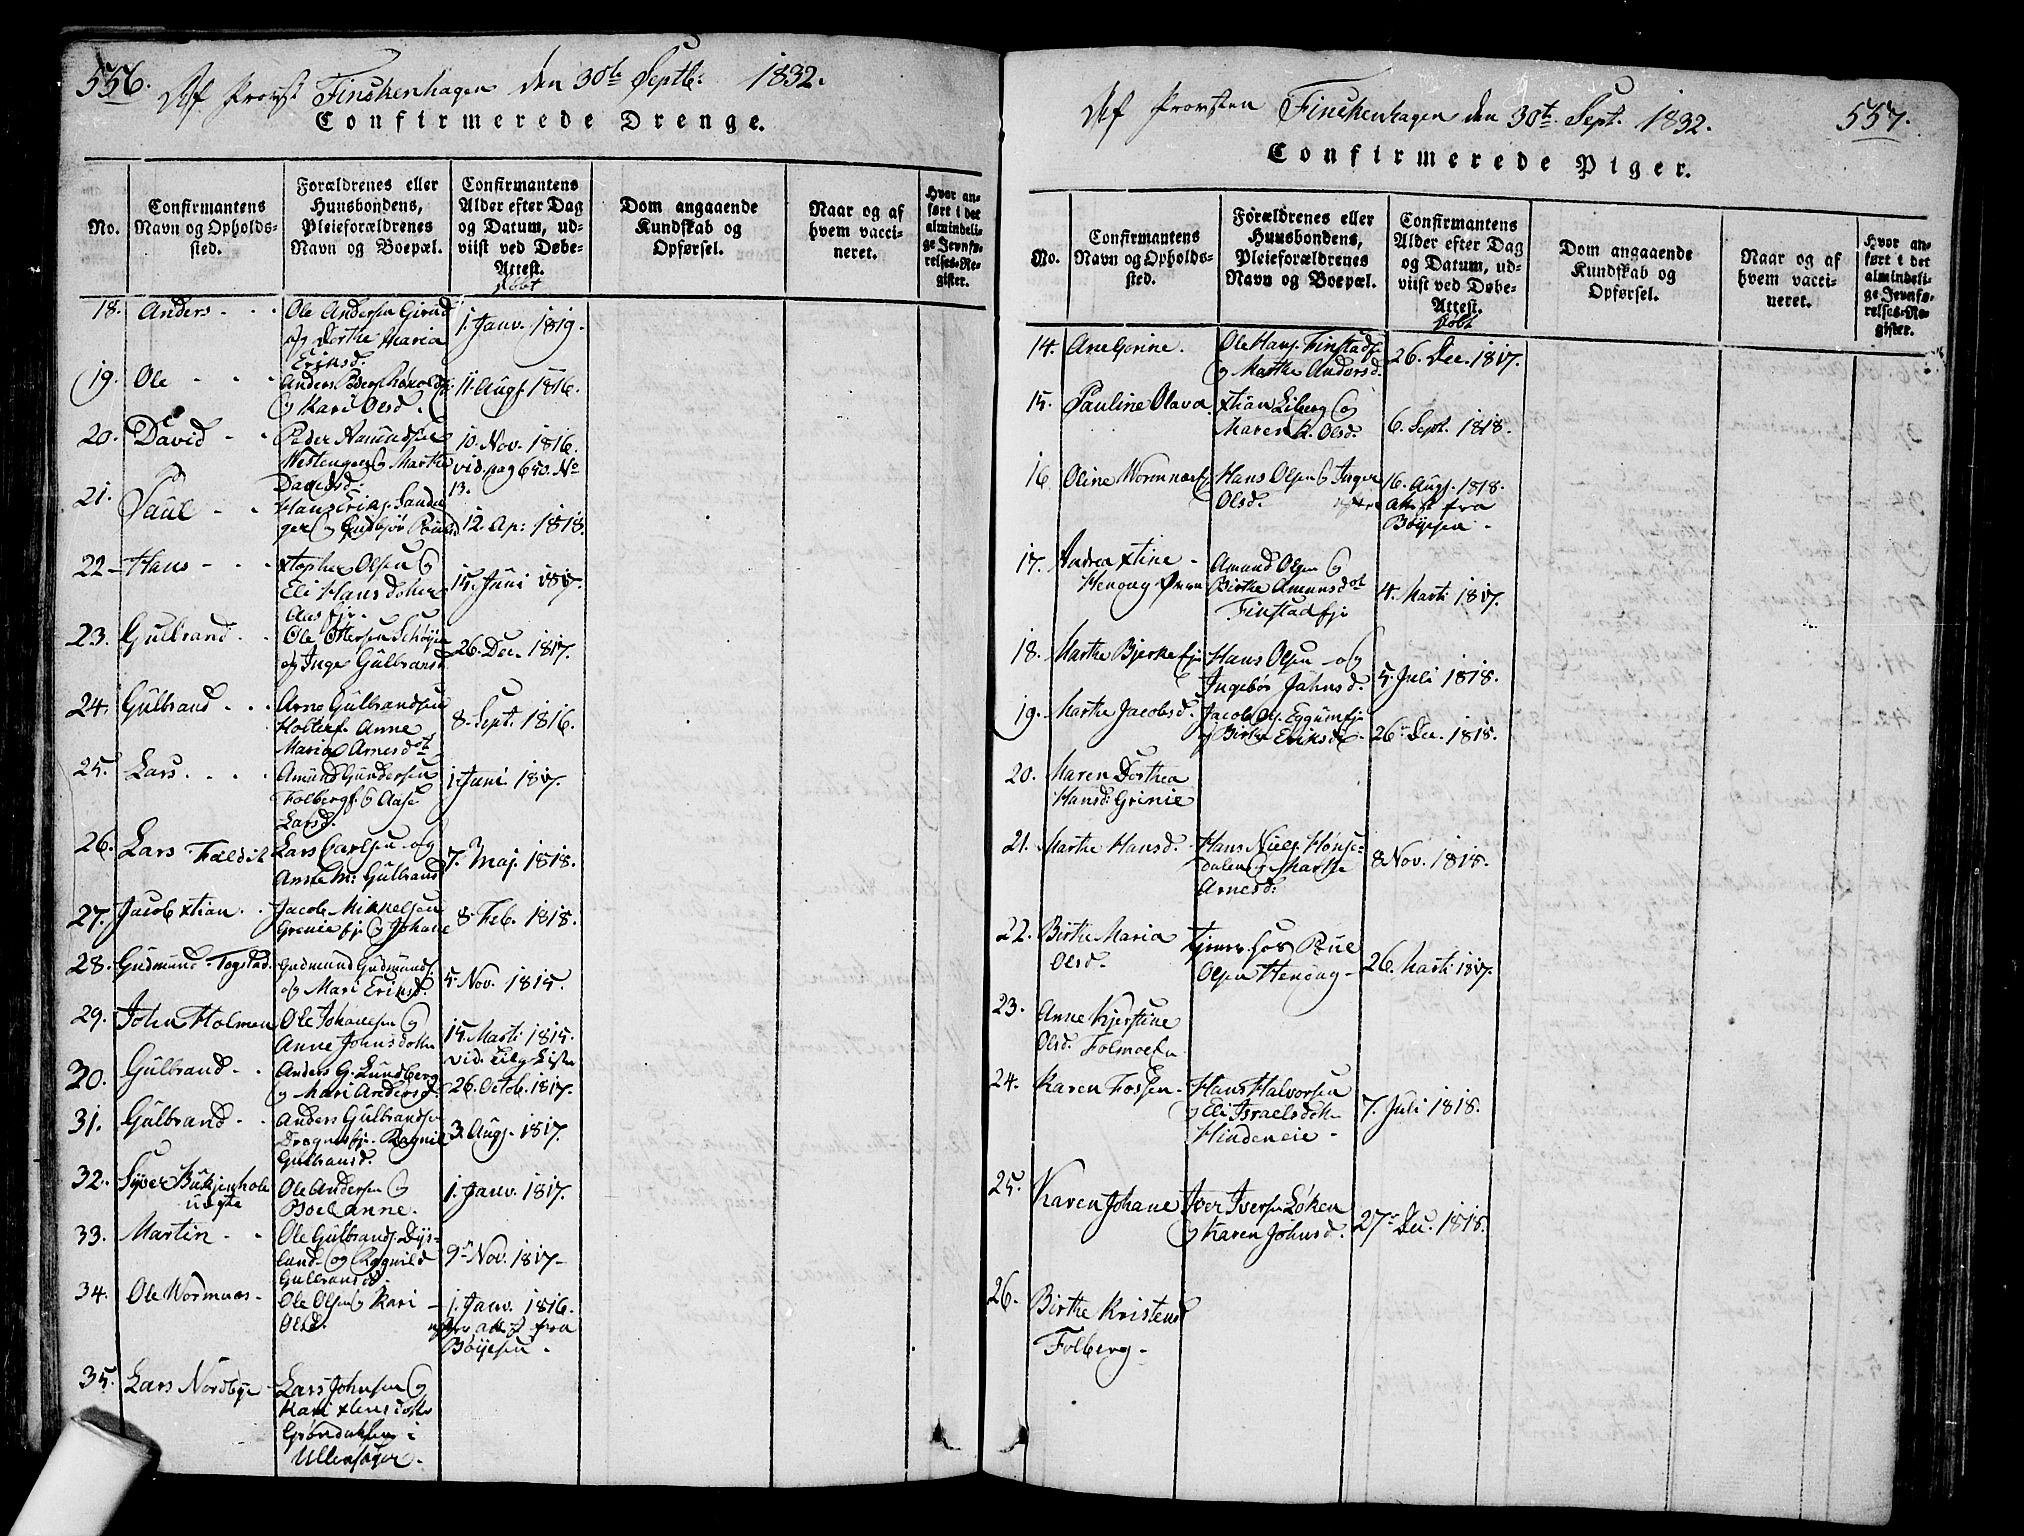 556. Af Provst Finckenhagen den 30te Septb. 1832.
Confirmerede Drenge.
No.
Confirmantens
Navn og Opholds-
sted.
Forældrenes eller
Huusbondens,
Pleieforældrenes
Navn og Boepæl.
Confirmantens
Alder efter Dag
og Datum, ud-
viist ved Døbe-
Attest.
Døbt
Dom angaaende
Kundskab og
Opførsel.
Naar og af
hvem vacci-
neret.
Hvor an-
ført i det
almindeli-
ge Jevnfø-
relses-Re-
gister.
18. Anders - - Ole Andersen
og Dorthe Maria 1. Janv. 1819.
Eriksd.
19. Ole - - - Anders Peders.
og Kari Olsd. 11. Augs. 1816.
20. David - - Peder Amundsen 10. Nov. 1816.
Westengen og Marthe vid. pag 680. No
Davidsd. 13.
21. Paul - - Hans Eriks. Sande
ger og Gudbjør Paulsd 12. Ap: 1818.
22 - Hans - - - xtopher Olsen og
Eli Hansdoter 15. Juni 1817.
Aas fje.
23. Gulbrand - - Ole Ottersen Schøyen
og Inge Gulbransd 26. Dec. 1817.
24. Gulbrand - - - Arne Gulbrandsen
Holterf. Anne 8. Sept. 1816.
Maria Arnesdot
25. Lars - - - - Amund Gundersen 1. Juni 1817.
Folbergf. og Aase
Larsd.
26. Lars Faldik Lars Carlsen og 7. Maj. 1818.
Anne M: Gulbrand
27. Jacob xtian - - Jacob Mikkelsen
Grenie fje og Johane 8. Feb. 1818.
28. Gudmund Togstad. Gudmund Gudmunds.
og Mari Eriksd. 5. Nov. 1815.
29. John Holmen Ole Johanesen og 15. Marti 1815.
Anne Johnsdoter vid.
30. Gulbrand - - Anders G. Lundberg
og Mari Andersd. 26. Octob. 1817.
31. Gulbrand - - Anders Gulbrandsen 3. Augs. 1817.
Ragnil
Gulbransd.
32. Syver Ole Andersen og 1. Janv. 1817.
Boel Anne.
33. Martin - - Ole Gulbrands. Dys-
land og Ragnild 9. Nov. 1817 -
Gulbransd.
34. Ole Wormnæs - Ole Olsen og Kari - 1. Janv. 1816.
Olsd. attest fra
Bøyesen -
35. Lars Nordbye - Lars Johnsen og
Kari xtensdoter
Grøndalen i
Ullensager -
Af Provsten Finckenhagen den 30te. Sept. 1832. 557.
Confirmerede Piger.
No.
Confirmantens
Navn og Opholds-
sted.
Forældrenes eller
Huusbondens,
Pleieforældrenes
Navn og Boepæl.
Confirmantens
Alder efter Dag
og Datum, ud-
viist ved Døbe-
Attest.
Døbt
Dom angaaende
Kundskab og
Opførsel.
Naar og af
hvem vacci-
neret.
Hvor an-
ført i det
almindeli-
ge Jevnfø-
relses-Re-
gister.
14. Ane Gorine. Ole Hans. Finstadf.
og Marthe Andersd. 26. Dec. 1817.
15. Pauline Olava. xtian Liberg og
Maren K. Olsd. 6. Sept. 1818.
16. Oline Hans Olsen og Inger 16. Augs. 1818.
Olsd. attest fra
Bøyesen -
17. Andrea xtine - Amund Olsen og
Birthe Amunsdot 4. Marti 1817.
Finstad fje
18. Marthe Bjerke fje Hans Olsen og
Ingebør Johnsd. 5. Juli 1818.
19. Marthe Jacobsd. Jacob Ols. Eggum fje
og Birthe Eriksd. 26. Dec. 1818.
20. Maren Dorthea
Hansd: Grinie
21. Marthe Hansd. Hans Niels. Hønse-
dalen og Marthe 8 Nov. 1818.
Arnesd:
22. Birthe Maria hos
Olsd. Olsen - 26. Marti 1817.
23. Anne Kjerstine
Olsd.
24. Karen Fossen - Hans Halvorsen
og Eli Israelsdoter 7. Juli 1818.
Hindeneie -
25. Karen Johane Iver Iversen Løken
og Karen Johnsd. 27. Dec. 1818.
26. Birthe Kristensd
Folberg -